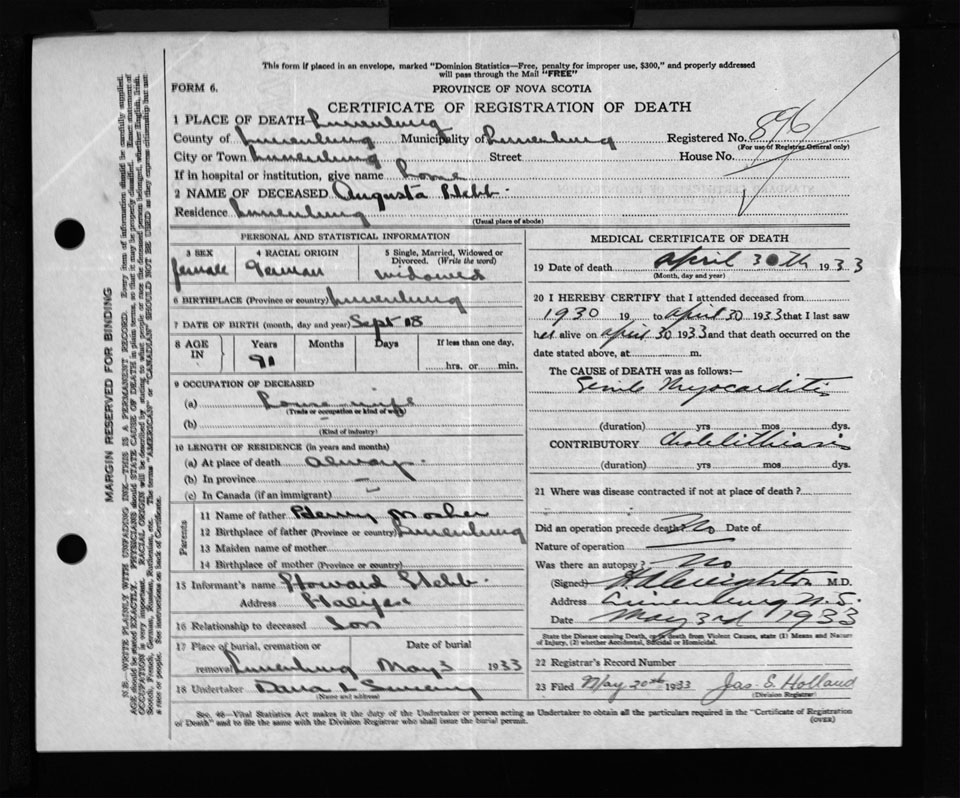 This form if placed in an envelope, marked "Dominion Statistics—Free, penalty for improper use, $300," and properly addressed
will pass through the Mail "FREE"
FORM 6. PROVINCE OF NOVA SCOTIA
CERTIFICATE OF REGISTRATION OF DEATH
1 PLACE OF DEATH— Lunenburg
County of Lunenburg Municipality of Lunenburg Registered No. 896
(For use of Registrar General only)
City or Town Lunenburg Street House No.
If in hospital or institution, give name Home
2 NAME OF DECEASED Augusta
Residence Lunenburg
(Usual place of abode)
PERSONAL AND STATISTICAL INFORMATION
3 SEX 4 RACIAL ORIGIN 5 Single, Married, Widowed or
Divorced. (Write the word)
female German widowed
6 BIRTHPLACE (Province or country) Lunenburg
7 DATE OF BIRTH (month, day and year) Sept 18
8 AGE IN Years Months Days If less than one day,
91 hrs. or min.
9 OCCUPATION OF DECEASED
(a) House wife
(Trade or occupation or kind of work)
(b)
(Kind of industry)
10 LENGTH OF RESIDENCE (in years and months)
(a) At place of death always
(b) In province
(c) In Canada (if an immigrant)
Parents
11 Name of father Henry Mosher
12 Birthplace of father (Province or country) Lunenburg
13 Maiden name of mother
14 Birthplace of mother (Province or country)
15 Informant's name Howard
Address Halifax
16 Relationship to deceased Son
17 Place of burial, cremation or Date of burial
removal Lunenburg May 3 1933
18 Undertaker
(Name and address)
MEDICAL CERTIFICATE OF DEATH
19 Date of death April 30th 1933
(Month, day and year)
20 I HEREBY CERTIFY that I attended deceased from
1930 19 to April 30 1933 that I last saw
her alive on April 30 1933 and that death occurred on the
date stated above, at m.
The CAUSE of DEATH was as follows:—
Senile Myocarditis
(duration) yrs mos dys.
CONTRIBUTORY Cholelithiasis
(duration) yrs mos dys.
21 Where was disease contracted if not at place of death?
Did an operation precede death? No Date of
Nature of operation
Was there an autopsy? No
(Signed) M.D.
Address Lunenburg N.S.
Date May 3rd 1933
State the Disease causing Death, or in death from Violent Causes, state (1) Means and Nature
of Injury, (2) whether Accidental, Suicidal or Homicidal.
22 Registrar's Record Number
23 Filed May 20th 1933 Jas. E. Holland
(Division Registrar)
Sec. 46—Vital Statistics Act makes it the duty of the Undertaker or person acting as Undertaker to obtain all the particulars required in the "Certificate of Registration
of Death" and to file the same with the Division Registrar who shall issue the burial permit. (OVER)
MARGIN RESERVED FOR BINDING
N.B.—WRITE PLAINLY WITH UNFADING INK—THIS IS A PERMANENT RECORD. Every item of information should be carefully supplied.
AGE should be stated EXACTLY. PHYSICIANS should STATE CAUSE OF DEATH in plain terms, so that it may be properly classified. Exact statement of
OCCUPATION is very important. RACIAL ORIGIN will be described by stating to what people or race the deceased person belonged, whether English, Irish,
Scotch, French, German, Russian, Ruthenian, etc. The terms "AMERICAN" or "CANADIAN" SHOULD NOT BE USED as they express citizenship but not
a race or people. See instructions on back of Certificate.